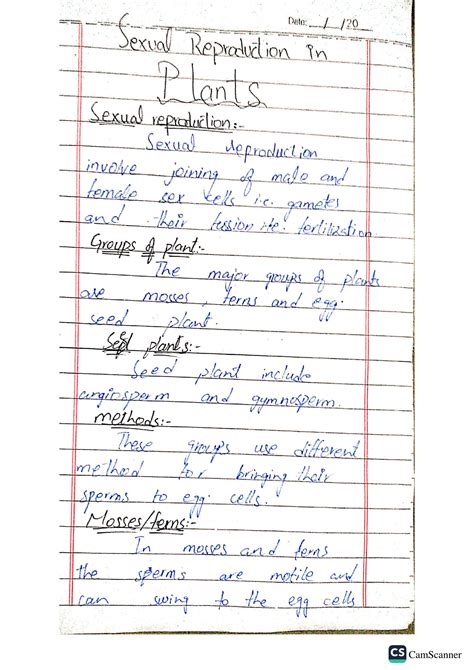 Date: / /20
Sexual Reproduction in
Plants
Sexual reproduction:-
Sexual reproduction
involve joining of male and
female sex cells i.e. gametes
and their fusion i.e. fertilization
Groups of plant:-
The major groups of plants
are mosses, ferns and egg.
seed plant.
Seed plants:-
Seed plant include
angiosperm and gymnosperm.
methods:-
These groups use different
method for bringing their
sperms to egg cells.
Mosses/ferns:-
In mosses and ferns
the sperms are motile and
can swing to the egg cells
CS CamScanner